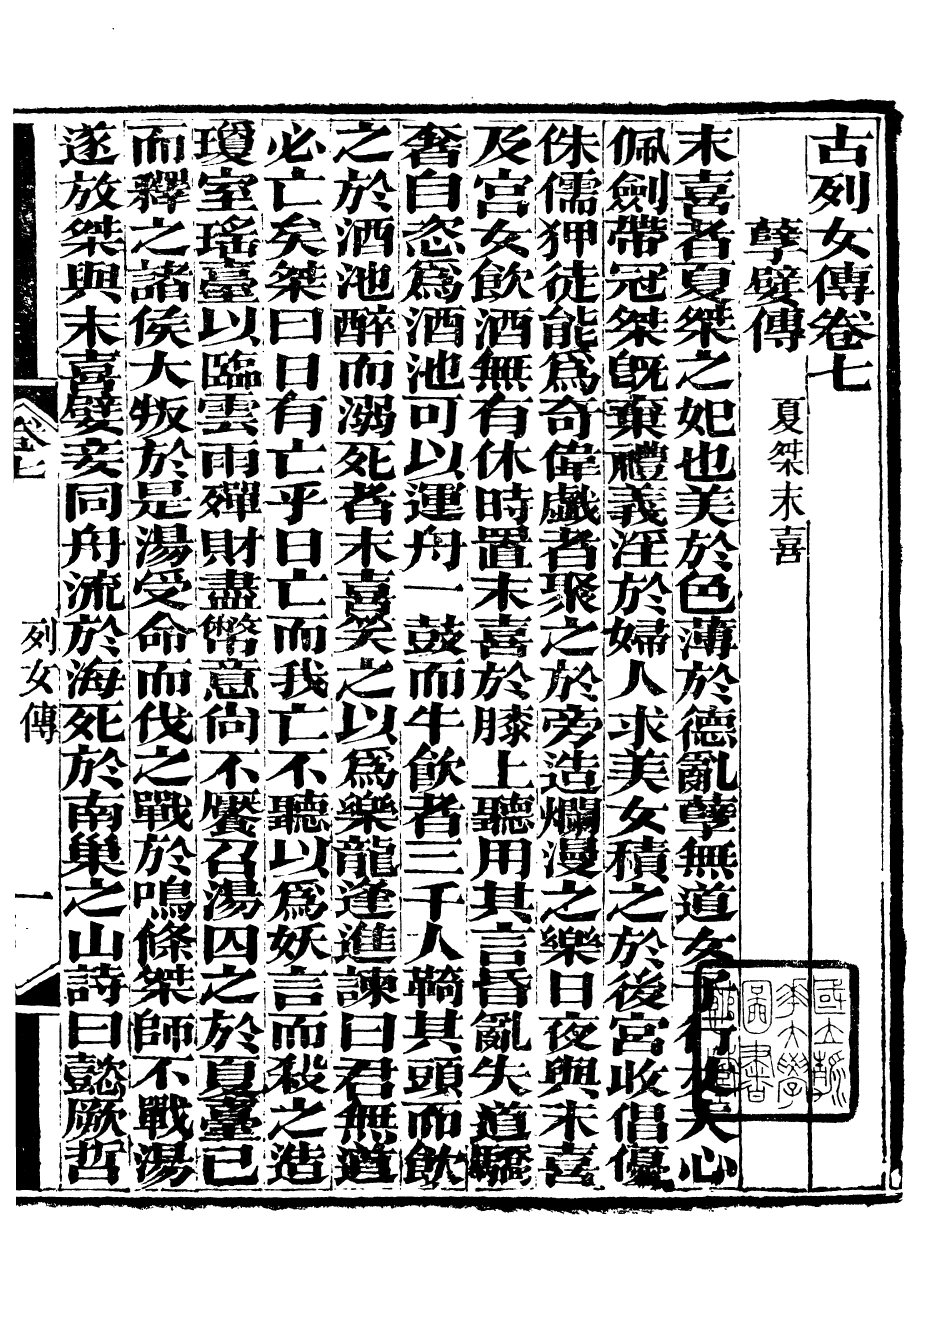 古列女傳卷七
孽嬖傳　夏桀末喜
末喜者夏桀之妃也美於色薄於德亂孽無道女子行丈夫心
佩劍帶冠桀旣棄禮義淫於婦人求美女積之於後宮收倡優
侏儒狎徒能爲奇偉戲者聚之於旁造爛漫之樂日夜與末喜
及宮女飮酒無有休時置末喜於膝上聽用其言昏亂失道驕
奢自恣爲酒池可以運舟一鼓而牛飮者三千人䩭其頭而飮
之於酒池醉而溺死者末喜笑之以爲樂龍逢進諫曰君無道
必亡矣桀曰日有亡乎日亡而我亡不聽以爲妖言而殺之造
瓊室瑤臺以臨雲雨殫財盡幣意尙不饜召湯囚之於夏臺已
而釋之諸侯大叛於是湯受命而伐之戰於鳴條桀師不戰湯
遂放桀與末喜嬖妾同舟流於海死於南巢之山詩曰懿厥哲
列女傳
一